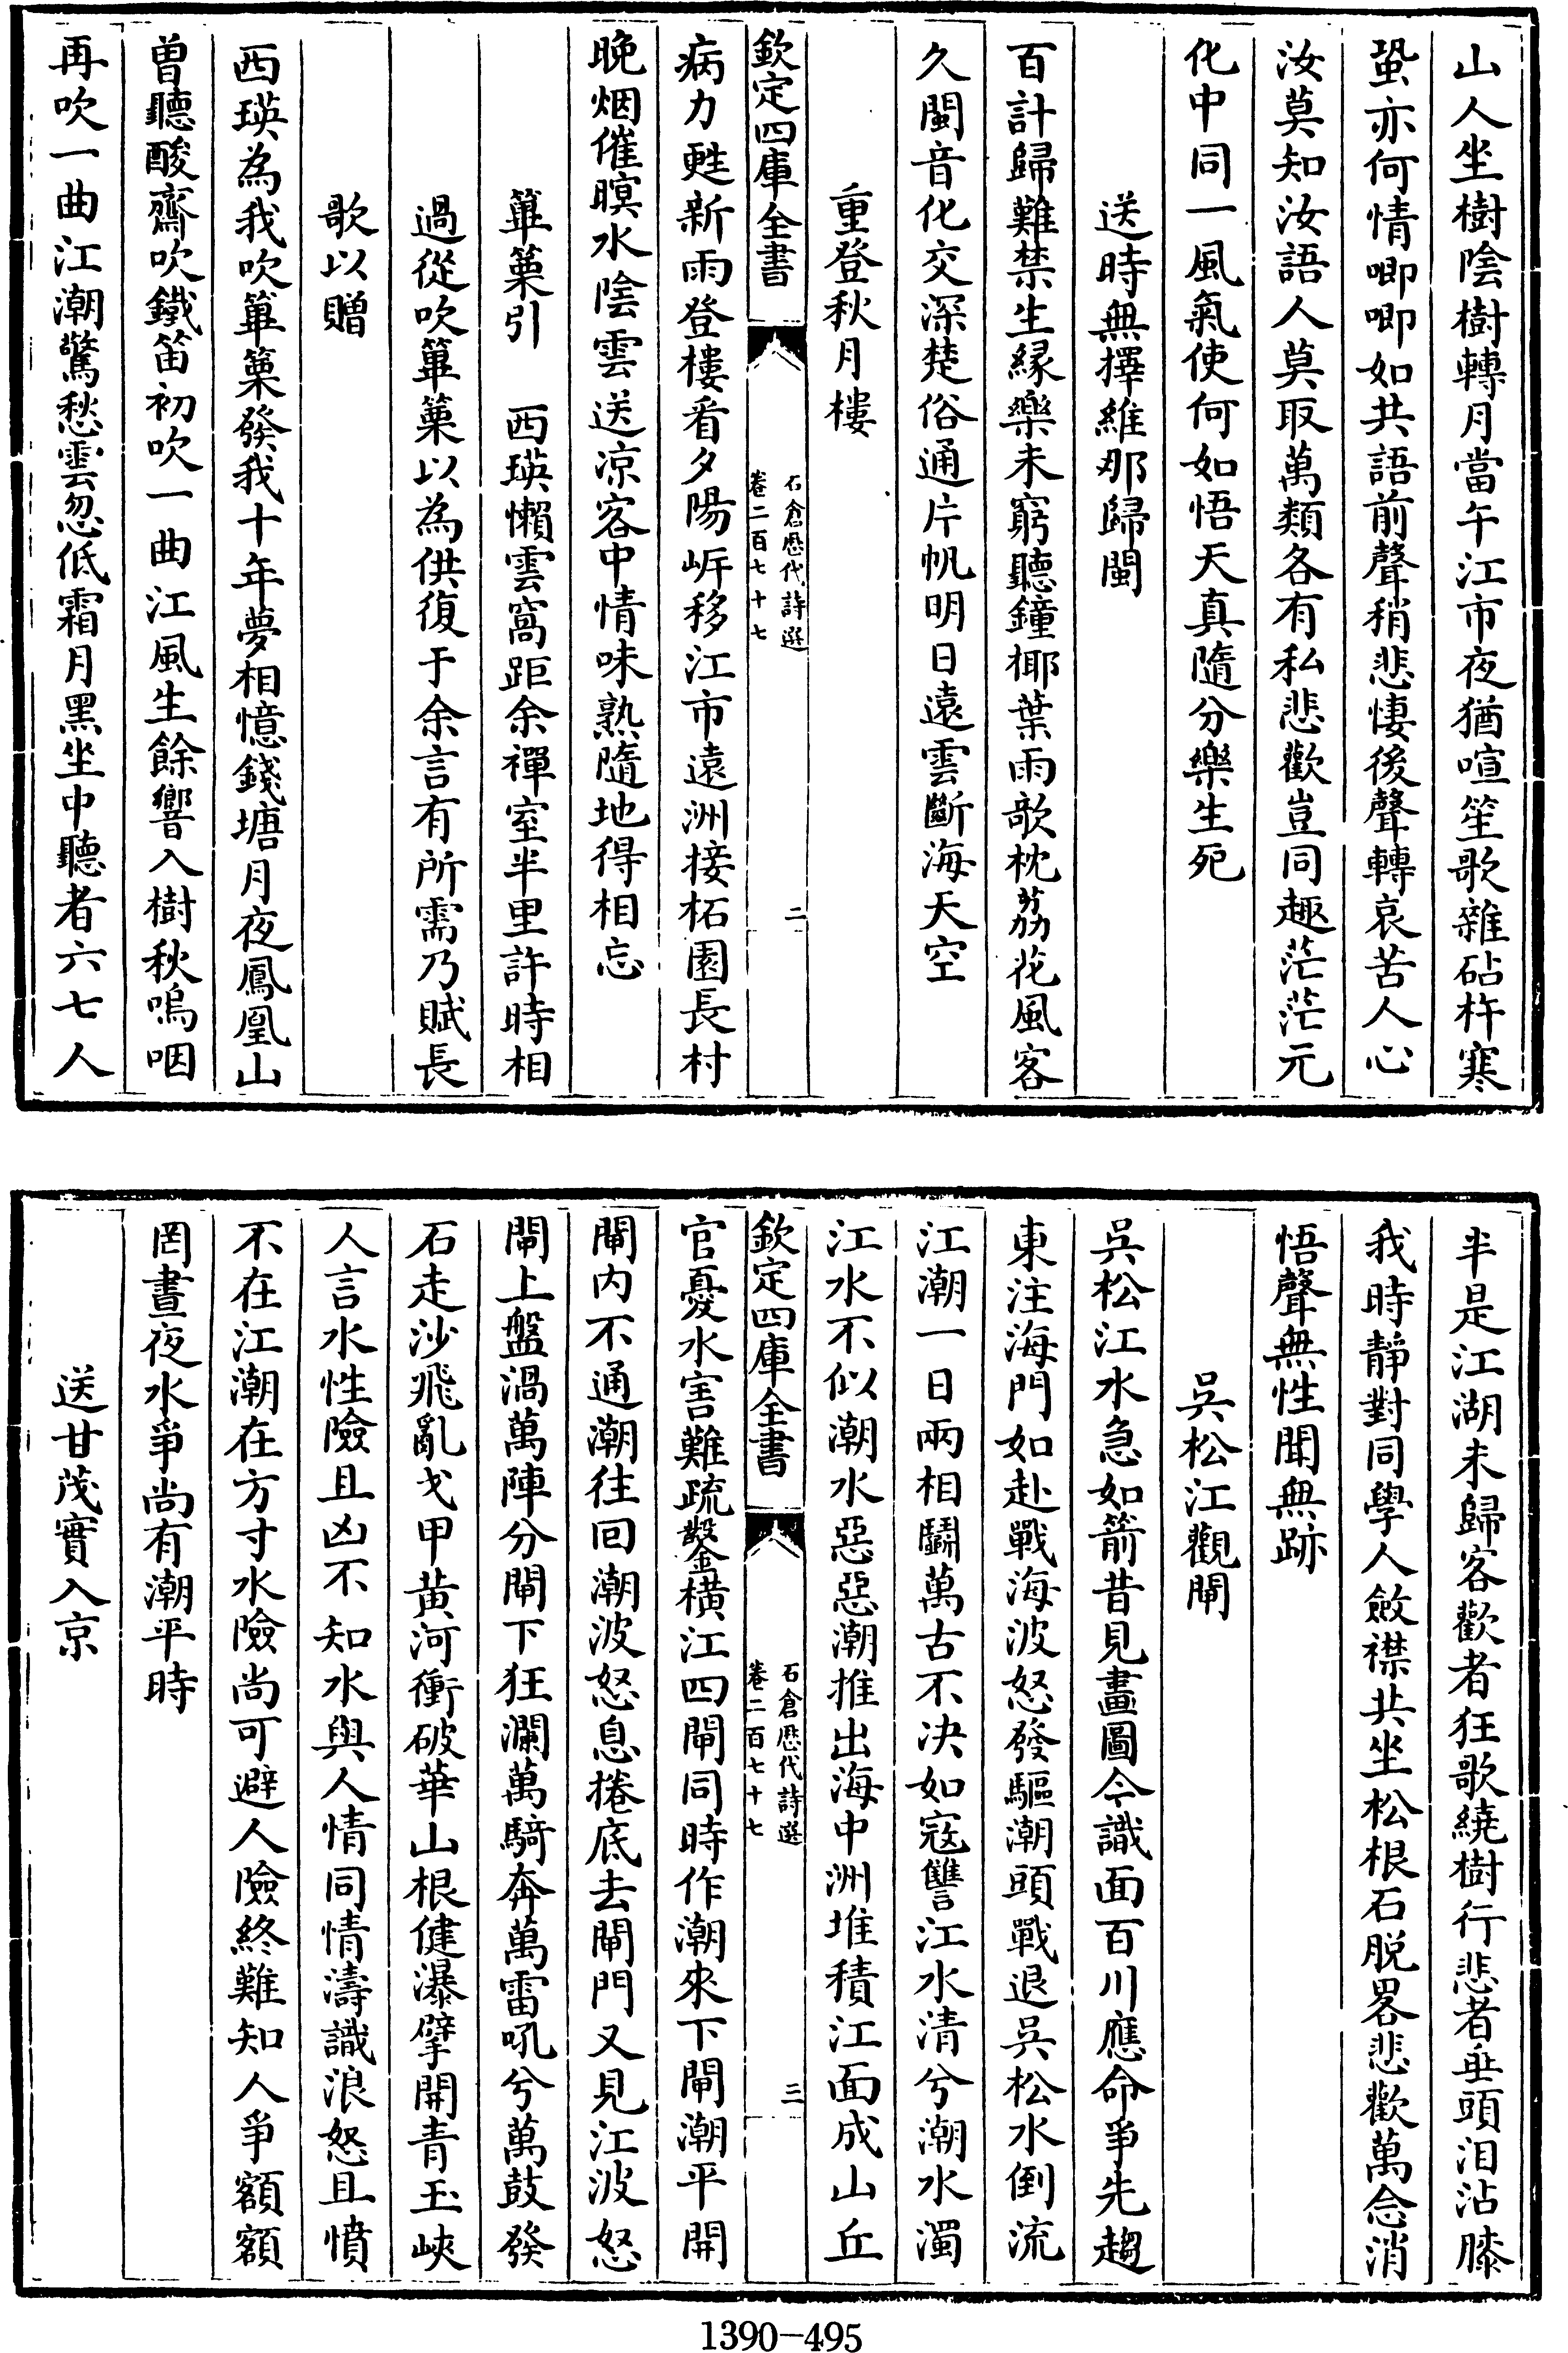 山人坐樹陰樹轉月當午江市夜猶喧笙歌雜砧杵寒
蛩亦何情唧唧如共語前聲稍悲悽後聲轉哀苦人心
汝莫知汝語人莫取萬類各有私悲歡豈同趣茫茫元
化中同一風氣使何如悟天真隨分樂生死
送時無擇維那歸閩
百計歸難禁生縁樂未窮聽鐘椰葉雨欹枕荔花風客
久閩音化交深楚俗通片帆明日遠雲斷海天空
重登秋月樓
欽定四庫全書
石倉歴代詩選
卷二百七十七
二
病力甦新雨登樓看夕陽㟁移江市遠洲接柘園長村
晚烟催暝水陰雲送凉客中情味熟隨地得相忘
篳篥引 西瑛懶雲窩距余禪室半里許時相
過從吹篳篥以為供復于余言有所需乃賦長
歌以贈
西瑛為我吹篳篥發我十年夢相憶錢塘月夜鳳凰山
曽聽酸齋吹鐵笛初吹一曲江風生餘響入樹秋嗚咽
再吹一曲江潮驚愁雲忽低霜月黑坐中聽者六七人
半是江湖未歸客歡者狂歌繞樹行悲者垂頭泪沾膝
我時靜對同學人斂襟共坐松根石脱畧悲歡萬念消
悟聲無性聞無跡
吳松江觀閘
吳松江水急如箭昔見畫圖今識面百川應命爭先趨
東注海門如赴戰海波怒發驅潮頭戰退吳松水倒流
江潮一日兩相鬬萬古不决如寇讐江水清兮潮水濁
江水不似潮水惡惡潮推出海中洲堆積江面成山丘
欽定四庫全書
石倉歴代詩選
卷二百七十七
三
官憂水害難疏鑿橫江四閘同時作潮來下閘潮平開
閘内不通潮往回潮波怒息捲底去閘門又見江波怒
閘上盤渦萬陣分閘下狂瀾萬騎奔萬雷吼兮萬鼓發
石走沙飛亂戈甲黄河衝破華山根健瀑擘開青玉峽
人言水性險且凶不知水與人情同情濤識浪怒且憤
不在江潮在方寸水險尚可避人險終難知人爭額額
罔晝夜水爭尚有潮平時
送甘茂實入京
1390-495